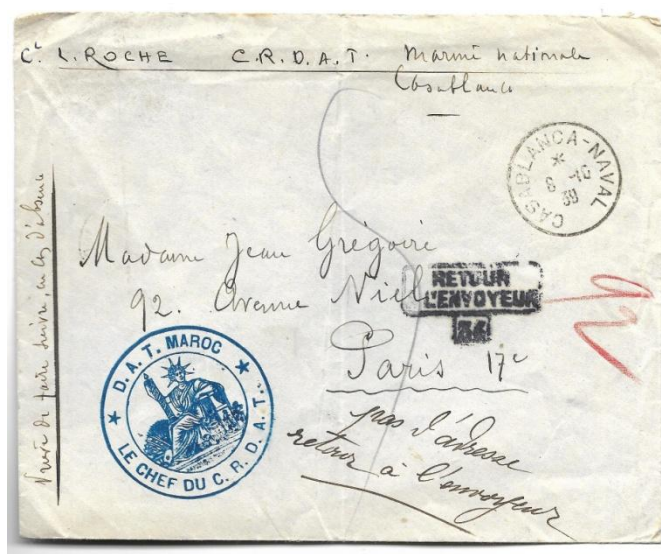 Ct L. ROCHE C.R.D.A.T. Marine nationale
Casablanca
CASABLANCA-NAVAL
* 6 -10 39
Prière de faire suivre, en cas d'absence
Madame Jean Grégoire
92. Avenue Niel
Paris 17e
RETOUR
L'ENVOYEUR
92
★ D. A. T. MAROC ★
LE CHEF DU C. R. D. A. T.
pas d'adresse
retour à l'envoyeur